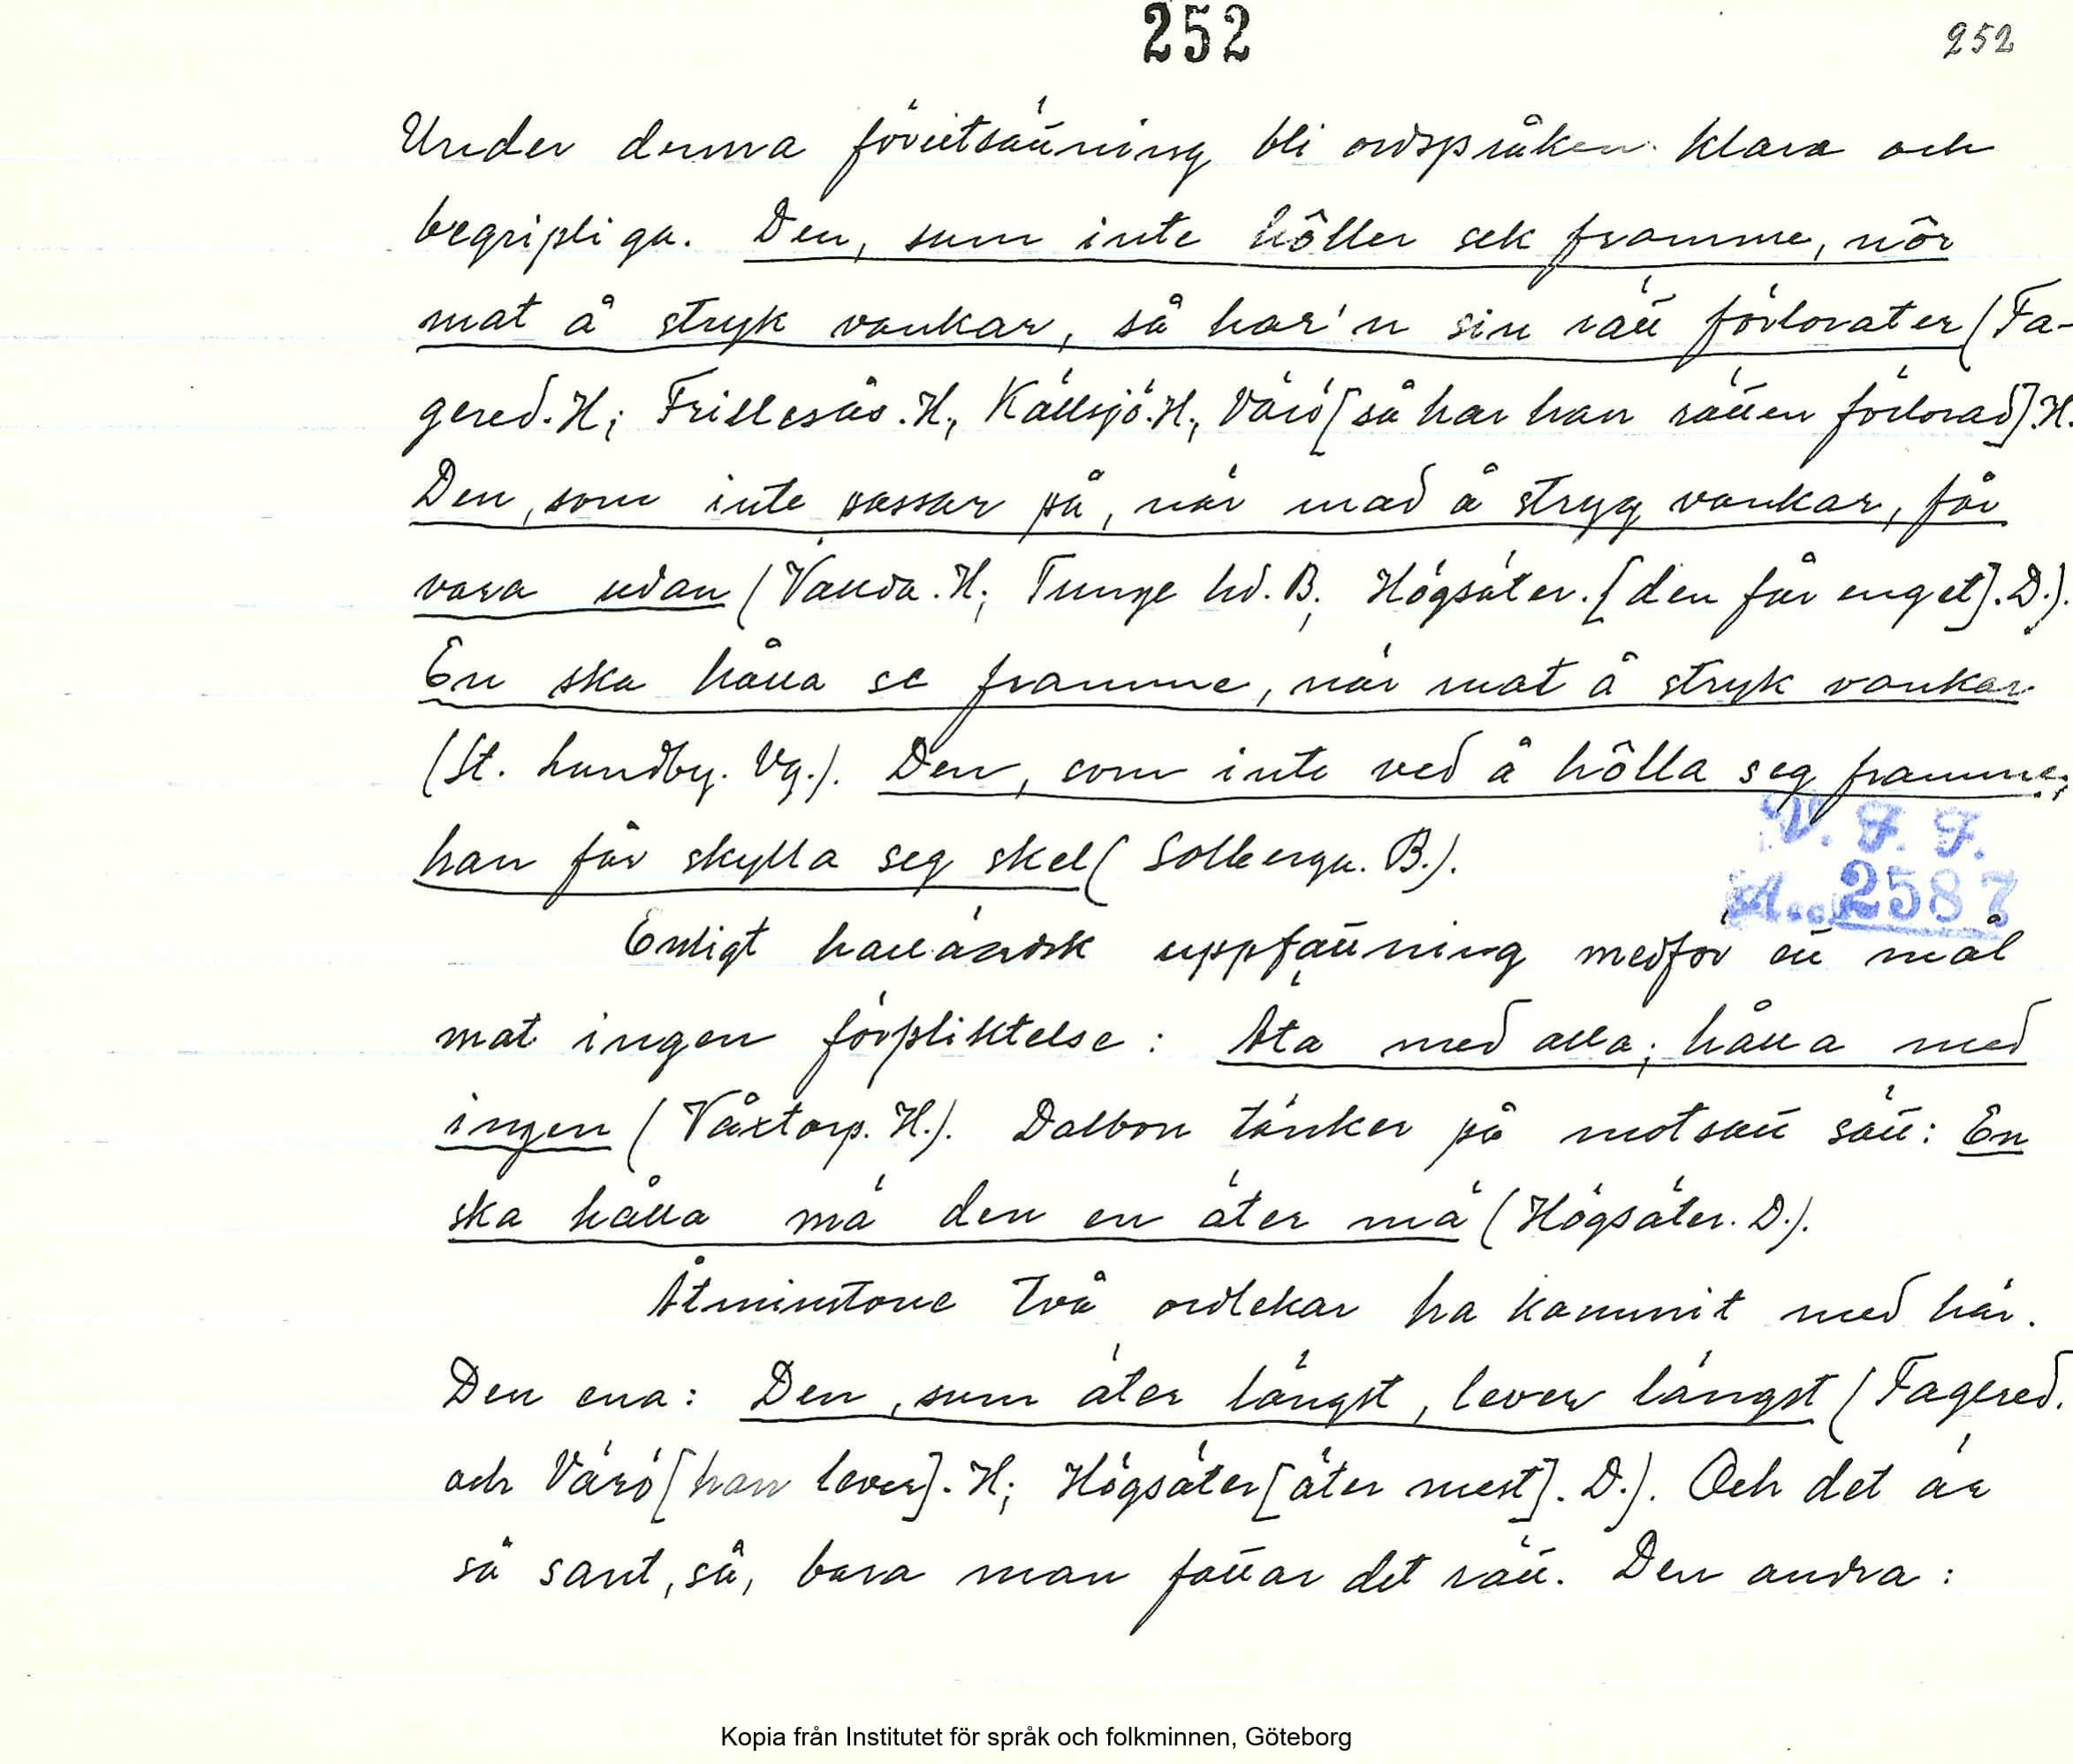 252
252
Under denna förutsättning bli ordspråken klara och
begripliga. Den, sum inte hôller sek framme, nôr
mat å stryk vankar, så har'n sin rätt förlorater (Fa-
gered. H; Frillesås. H; Källsjö. H; Värö [så har han rätten förlorad]. H.
Den, som inte passar på, när mad å stryg vankar, får
vara udan (Vallda. H; Tunge hd. B; Högsäter. [den får enget]. D.).
En ska hålla se framme, när mat å stryk vankar
(St. Lundby. Vg.). Den, som inte ved å hôlla seg framme,
han får skylla seg skel (Solberga. B.).
V. F. F.
Acc. 2587
Enligt halländsk uppfattning medför ett mål
mat ingen förpliktelse: Äta med alla; hålla med
ingen (Våxtorp. H.). Dalbon tänker på motsatt sätt: En
ska hålla mä den en äter mä (Högsäter. D.).
Åtminstone två ordlekar ha kommit med här.
Den ena: Den, sum äter längst, lever längst (Fagered.
och Värö [han lever]. H; Högsäter [äter mest]. D.). Och det är
så sant, så, bara man fattar det rätt. Den andra:
Kopia från Institutet för språk och folkminnen, Göteborg